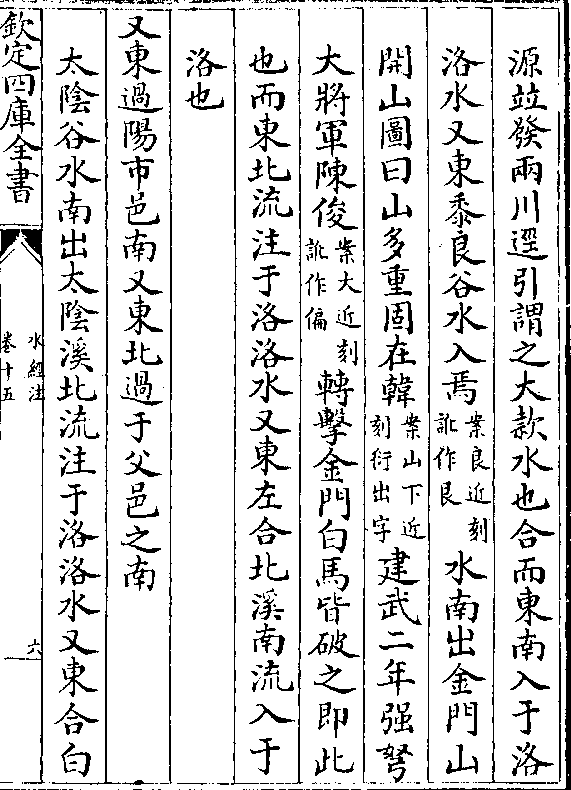 源竝發兩川逕引謂之大款水也合而東南入于洛
洛水又東黍良谷水入焉案良近刻訛作艮水南出金門山
開山圖曰山多重固在韓案山下近刻衍出字建武二年强弩
大將軍陳俊案大近刻訛作偏轉擊金門白馬皆破之即此
也而東北流注于洛洛水又東左合北溪南流入于
洛也
又東過陽市邑南又東北過于父邑之南
太陰谷水南出太陰溪北流注于洛洛水又東合白
欽定四庫全書
水經注
卷十五
六